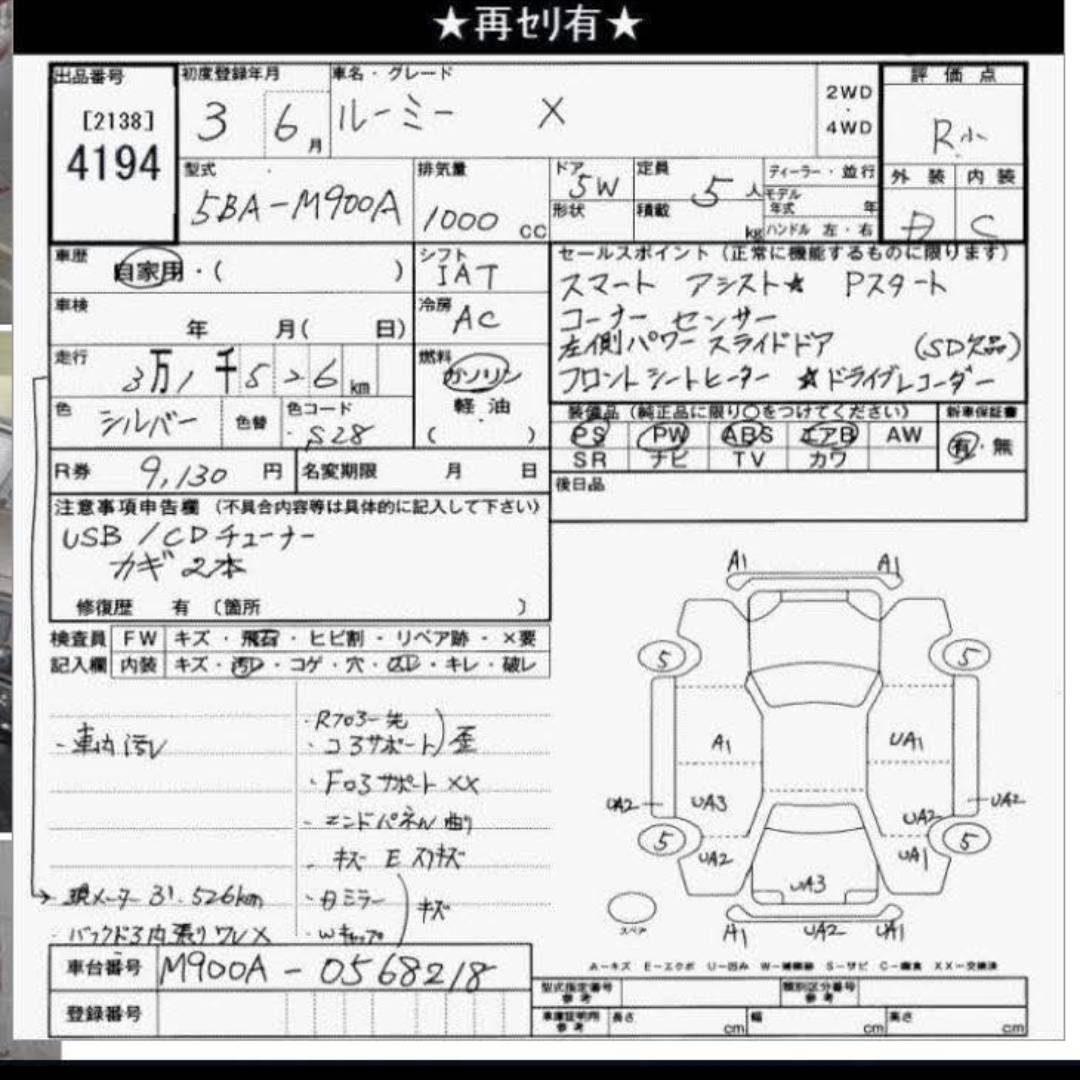 ★再セリ有★
出品番号 初度登録年月 車名・グレード 評価点
[2138] 3 6月 ルーミー X 2WD・4WD R小
4194
型式 排気量 ドア 5W 定員 5人 ディーラー・並行 外装 内装
5BA-M900A 1000cc 形状 積載 kg モデル年式 年 ハンドル 左・右 C
車歴 自家用・( ) シフト IAT セールスポイント(正常に機能するものに限ります)
スマート アシスト★ Pスタート
車検 年 月( 日) 冷房 AC コーナー センサー
左側パワー スライドドア (SD欠品)
走行 3万1千526km 燃料 ガソリン フロントシートヒーター ★ドライブレコーダー
軽油
( )
色 シルバー 色替 色コード S28 装備品(純正品に限り○をつけてください) 新車保証書
PS PW ABS エアB AW 有・無
SR ナビ TV カワ
R券 9,130円 名変期限 月 日 後日品
注意事項申告欄(不具合内容等は具体的に記入して下さい)
USB/CDチューナー
カギ2本
修復歴 有 〔箇所 〕
検査員 FW キズ・飛石・ヒビ割・リペア跡・×要
記入欄 内装 キズ・汚レ・コゲ・穴・・キレ・破レ
・車内汚レ
・コアサポート 歪
・Fロアサポート XX
・エンドパネル曲り
・キズ E スリキズ
・ミラー
・Wキャップ キズ
現メーター 31.526km
・バックドア内張りワレX
A1 A1
5 5
A1 UA1
UA2 UA3 UA2 UA2
5 5
UA2 UA1
UA3
スペア
A1 UA2 UA1
A-キズ E-エクボ U-凹み W-補修跡 S-サビ C-腐食 XX-交換済
車台番号 M900A-0568218
登録番号
型式指定番号 参考 類別区分番号 参考
車庫証明用 参考 長さ cm 幅 cm 高さ cm